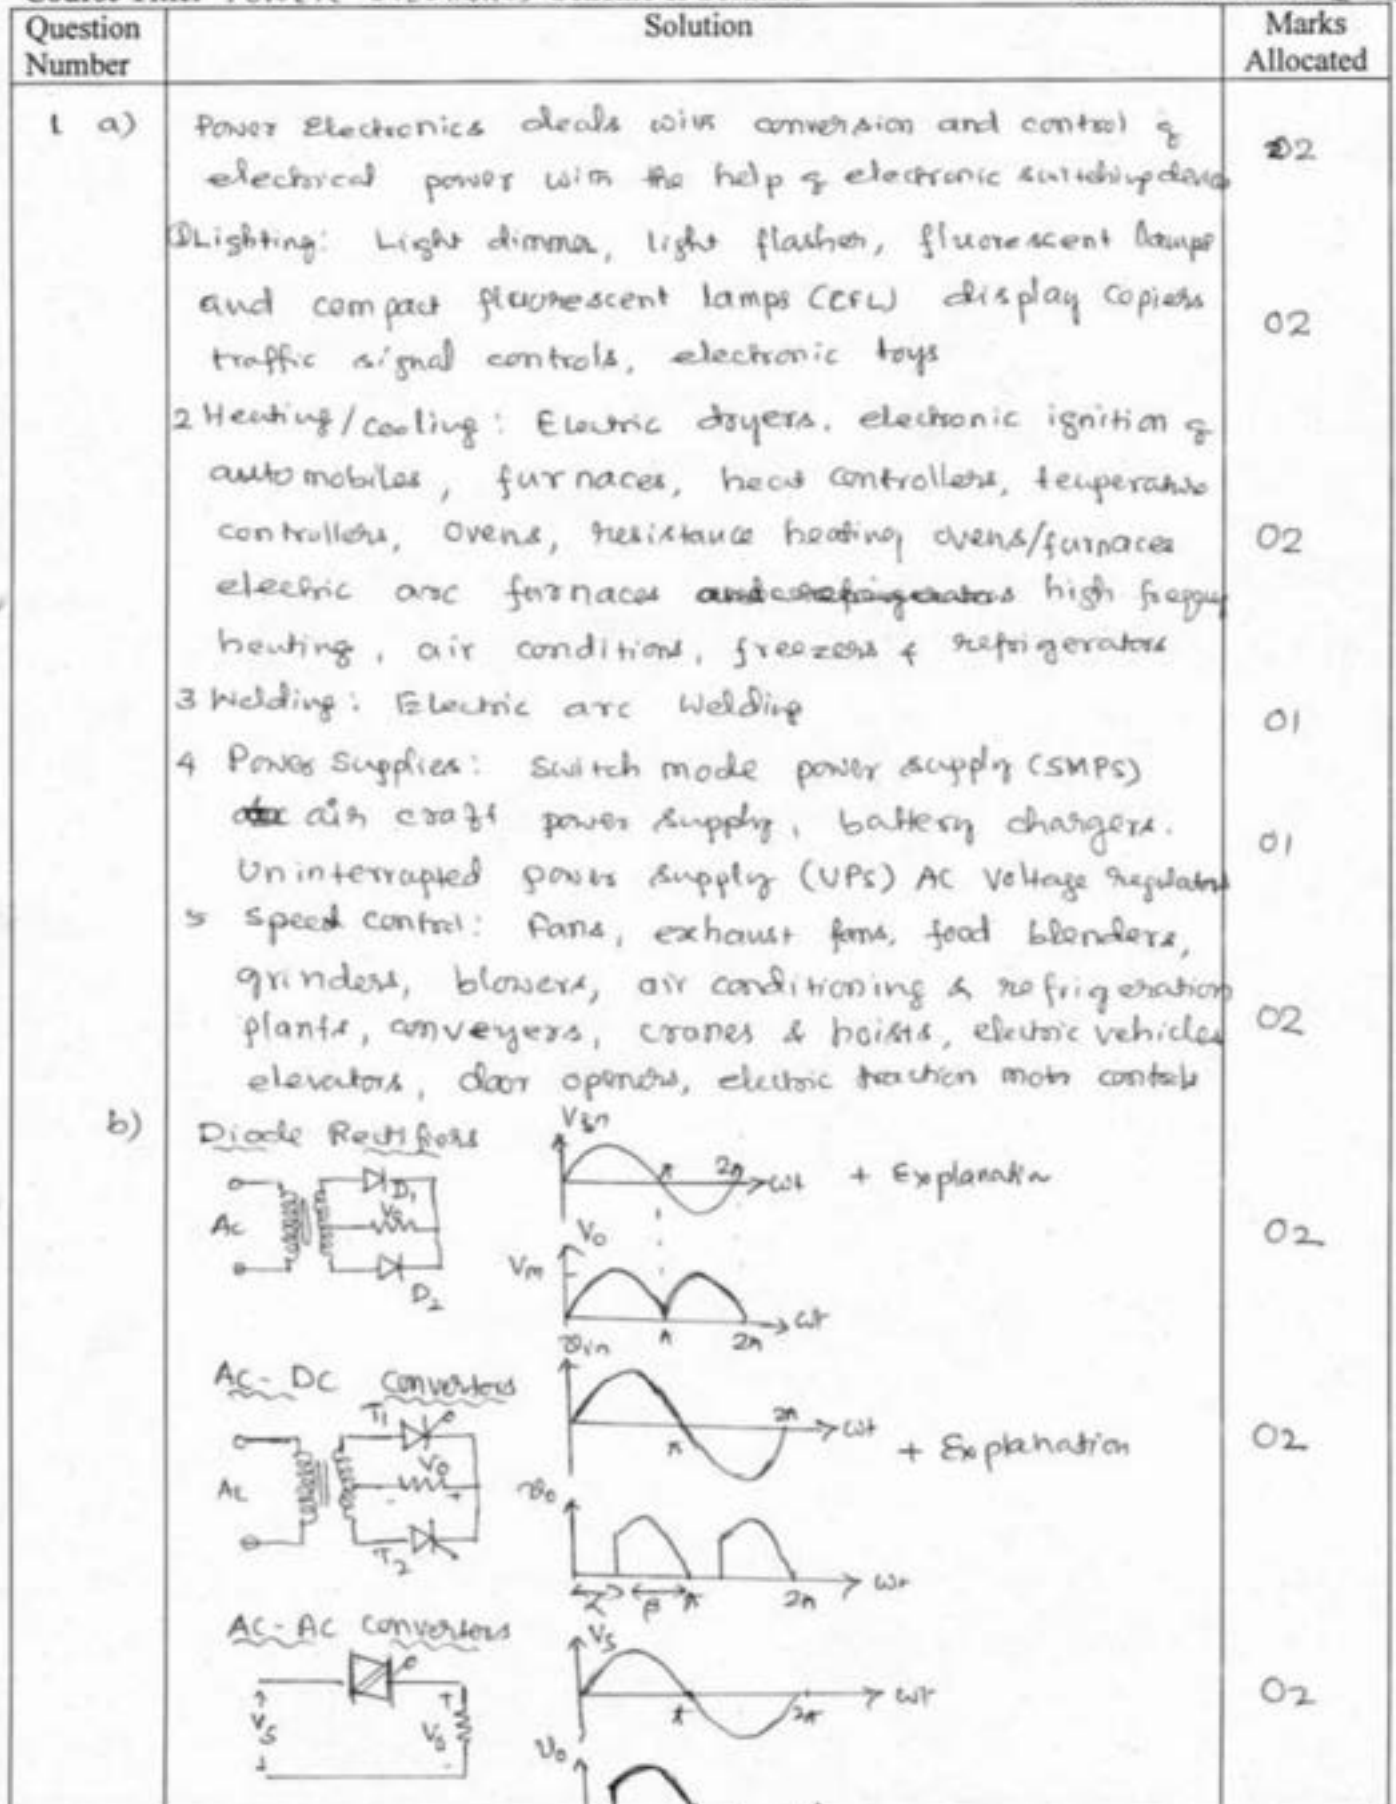 Question Number
Solution
Marks Allocated
1 a)
Power Electronics deals with conversion and control of
02
electrical power with the help of electronic switching devices
① Lighting: Light dimmer, light flasher, fluorescent lamps
and compact fluorescent lamps (CFL) display copiers
02
traffic signal controls, electronic toys
2 Heating/cooling: Electric dryers, electronic ignition of
automobiles, furnaces, heat controllers, temperature
controllers, Ovens, resistance heating ovens/furnaces
02
electric arc furnaces high frequency
heating, air conditions, freezers & refrigerators
3 Welding: Electric arc Welding
01
4 Power Supplies: Switch mode power supply (SMPS)
air craft power supply, battery chargers.
01
Uninterrupted power supply (UPS) AC Voltage regulators
5 Speed control: Fans, exhaust fans, food blenders,
grinders, blowers, air conditioning & refrigeration
plants, conveyers, cranes & hoists, electric vehicles
02
elevators, door openers, electric traction motor controls
b)
Diode Rectifiers
AC
D1
D2
π 2π ωt
+ Explanation
02
Vo
Vm
π 2π ωt
AC-DC Converters
T1
AC
Vo
- +
T2
vin
π 2π ωt
+ Explanation
02
vo
α β π 2π ωt
AC-AC Converters
Vs
Vs
π 2π ωt
02
vo